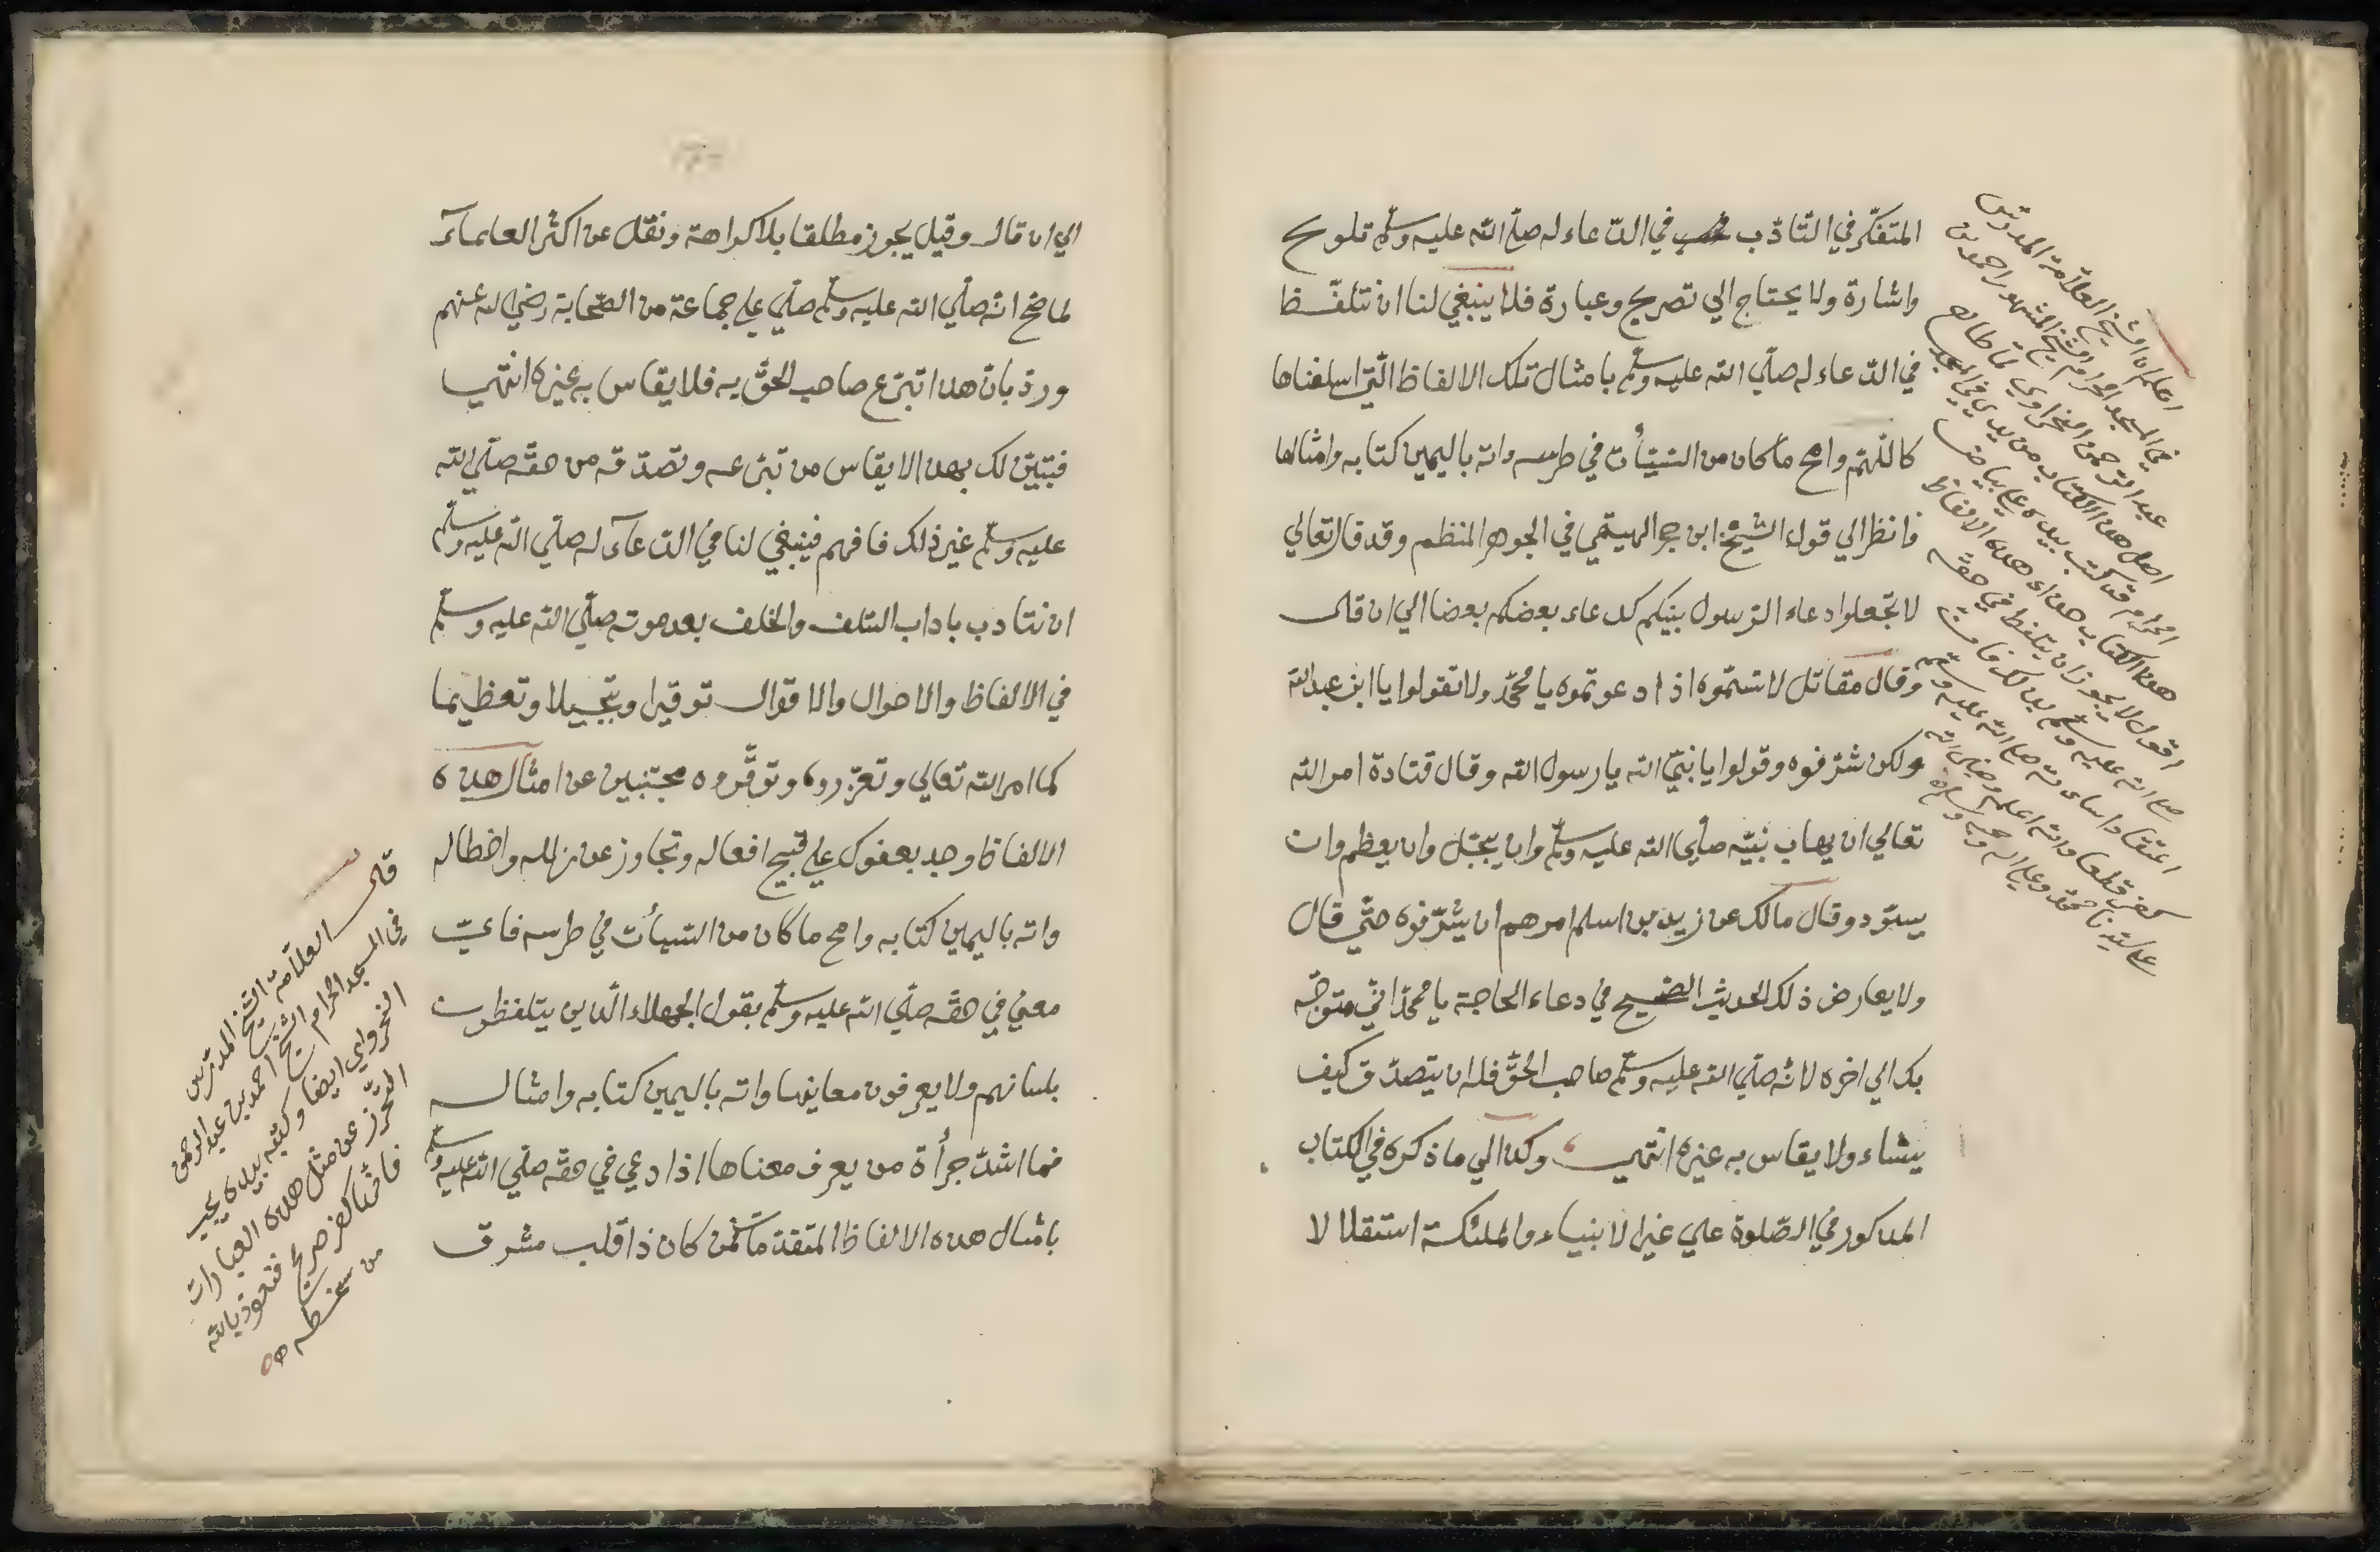 المتفكّر في التّادّب في الدّعاء له صلّى الله عليه وسلّم تلويح
واشارة ولا يحتاج الي تصريح وعبارة فلا ينبغي لنا ان نتلفّظ
في الدّعاء له صلّي الله عليه وسلّم بامثال تلك الالفاظ الّتي اسلفناها
كاللّهمّ وامح ما كان من السّيّأت في طرسه واته باليمين كتابه وامثالها
فانظر الي قول الشّيخ ابن حجر الهيتمي في الجوهر المنظم وقد قال تعالي
لا تجعلوا دعاء الرّسول بينكم كدعاء بعضكم بعضا الي ان قال
وقال مقاتل لا تسمّوه اذا دعوتموه يا محمّد ولا تقولوا يا ابن عبد الله
ولكن شرّفوه وقولوا يا نبيّ الله يا رسول الله وقال قتادة امر الله
تعالي ان يهاب نبيّه صلّي الله عليه وسلّم وان يبجّل وان يعظم وان
يسوّد وقال مالك عن زيد بن اسلم امرهم ان يشرّفوه حتّي قال
ولا يعارض ذلك الحديث الصّحيح في دعاء الحاجة يا محمّد انّي متوجّه
بك الي اخره لانّه صلّي الله عليه وسلّم صاحب الحقّ فله ان يتصدّق كيف
يشاء ولا يقاس به غيره انتهي وكذا الي ما ذكره في الكتاب
المذكور في الصّلوة علي غير الانبياء والملئكة استقلالا لا
اعلم ان الشّيخ العلّامة المدرّس
في المسجد الحرام الشّيخ المشهور احمد بن
عبد الرّحمن النحراوي لمّا طالع
اصل هذا الكتاب من يدي في المسجد
الحرام قد كتب بيده علي بياض
هذا الكتاب هذاء هذه الالفاظ
اقول لا يجوز ان يتلفظ في حقّه
صلي الله عليه وسلّم بذلك فان
اعتقاد اساءته صلي الله عليه وسلّم
كفر قطعا والله اعلم وصلي الله
علي سيّدنا محمّد وعلي اله وصحبه وسلم
الي ان قال وقيل يجوز مطلقا بلا كراهة ونقل عن اكثر العلماء
لما صحّ انّه صلّي الله عليه وسلّم صلّي علي جماعة من الصّحابة رضي الله عنهم
وردّ بانّ هذا تبرّع صاحب الحقّ به فلا يقاس به غيره انتهي
فتبيّن لك بهذا لا يقاس من تبرّعه وتصدّقه من حقّه صلّي الله
عليه وسلّم غير ذلك فافهم فينبغي لنا في الدّعآء له صلّي الله عليه وسلّم
ان نتادب باداب السّلف والخلف بعد موته صلّي الله عليه وسلّم
في الالفاظ والاحوال والاقوال توقيرا وتبجيلا وتعظيما
كما امر الله تعالي وتعزّروه وتوقّروه مجتنبين عن امثال هذه
الالفاظ وجد بعفوك علي قبيح افعاله وتجاوز عن زلله واخطاله
واته باليمين كتابه وامح ما كان من السّيأت في طرسه فايّ
معني في حقّه صلّي الله عليه وسلّم بقول الجهلاء الّذين يتلفظون
بلسانهم ولا يعرفون معانيها واته باليمين كتابه وامثاله
فما اشدّ جرأة من يعرف معناها اذا دعي في حقّه صلّي الله عليه وسلّم
بامثال هذه الالفاظ المتقدّمة فمن كان ذا قلب مشرق
قال العلّامة الشّيخ المدرّس
في المسجد الحرام الشّيخ احمد بن عبد الرحمن
النحراوي ايضا وكتبه بيده يجب
التحرّز عن مثل هذه العبارات
فانّها كفر صريح فنعوذ بالله
من سخطه